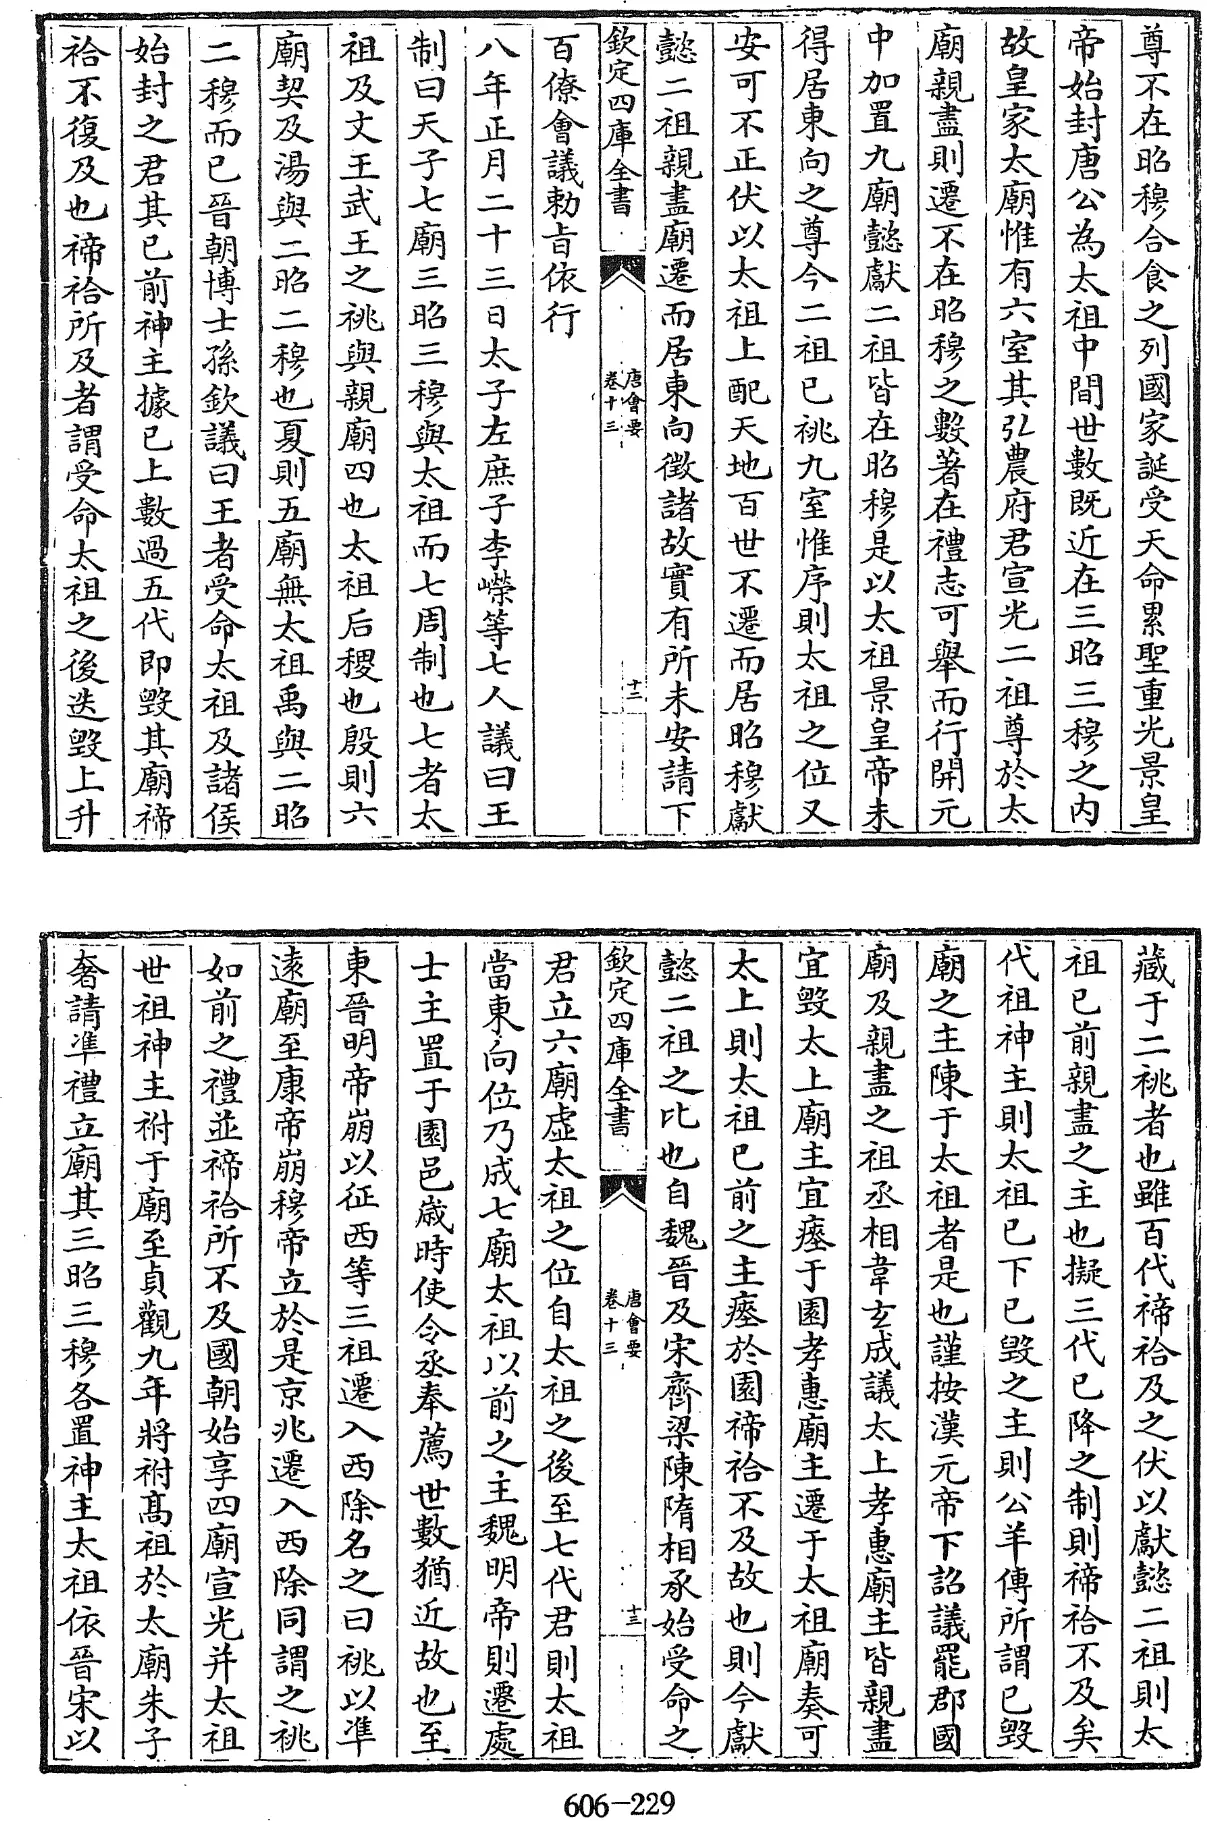 尊不在昭穆合食之列國家誕受天命累聖重光景皇
帝始封唐公為太祖中間世數既近在三昭三穆之内
故皇家太廟惟有六室其弘農府君宣光二祖尊於太
廟親盡則遷不在昭穆之數著在禮志可舉而行開元
中加置九廟懿獻二祖皆在昭穆是以太祖景皇帝未
得居東向之尊今二祖已祧九室惟序則太祖之位又
安可不正伏以太祖上配天地百世不遷而居昭穆獻
懿二祖親盡廟遷而居東向徵諸故實有所未安請下
欽定四庫全書
唐會要
卷十三
十二
百僚會議勅旨依行
八年正月二十三日太子左庶子李嶸等七人議曰王
制曰天子七廟三昭三穆與太祖而七周制也七者太
祖及文王武王之祧與親廟四也太祖后稷也殷則六
廟契及湯與二昭二穆也夏則五廟無太祖禹與二昭
二穆而已晉朝博士孫欽議曰王者受命太祖及諸侯
始封之君其已前神主據已上數過五代即毀其廟禘
祫不復及也禘祫所及者謂受命太祖之後迭毀上升
藏于二祧者也雖百代禘祫及之伏以獻懿二祖則太
祖已前親盡之主也擬三代已降之制則禘祫不及矣
代祖神主則太祖已下已毀之主則公羊傳所謂已毀
廟之主陳于太祖者是也謹按漢元帝下詔議罷郡國
廟及親盡之祖丞相韋玄成議太上孝惠廟主皆親盡
宜毀太上廟主宜瘞于園孝惠廟主遷于太祖廟奏可
太上則太祖已前之主瘞於園禘祫不及故也則今獻
懿二祖之比也自魏晉及宋齊梁陳隋相承始受命之
欽定四庫全書
唐會要
卷十三
十三
君立六廟虛太祖之位自太祖之後至七代君則太祖
當東向位乃成七廟太祖以前之主魏明帝則遷處
士主置于園邑歲時使令丞奉薦世數猶近故也至
東晉明帝崩以征西等三祖遷入西除名之曰祧以準
遠廟至康帝崩穆帝立於是京兆遷入西除同謂之祧
如前之禮並禘祫所不及國朝始享四廟宣光并太祖
世祖神主祔于廟至貞觀九年將祔髙祖於太廟朱子
奢請準禮立廟其三昭三穆各置神主太祖依晉宋以
606-229